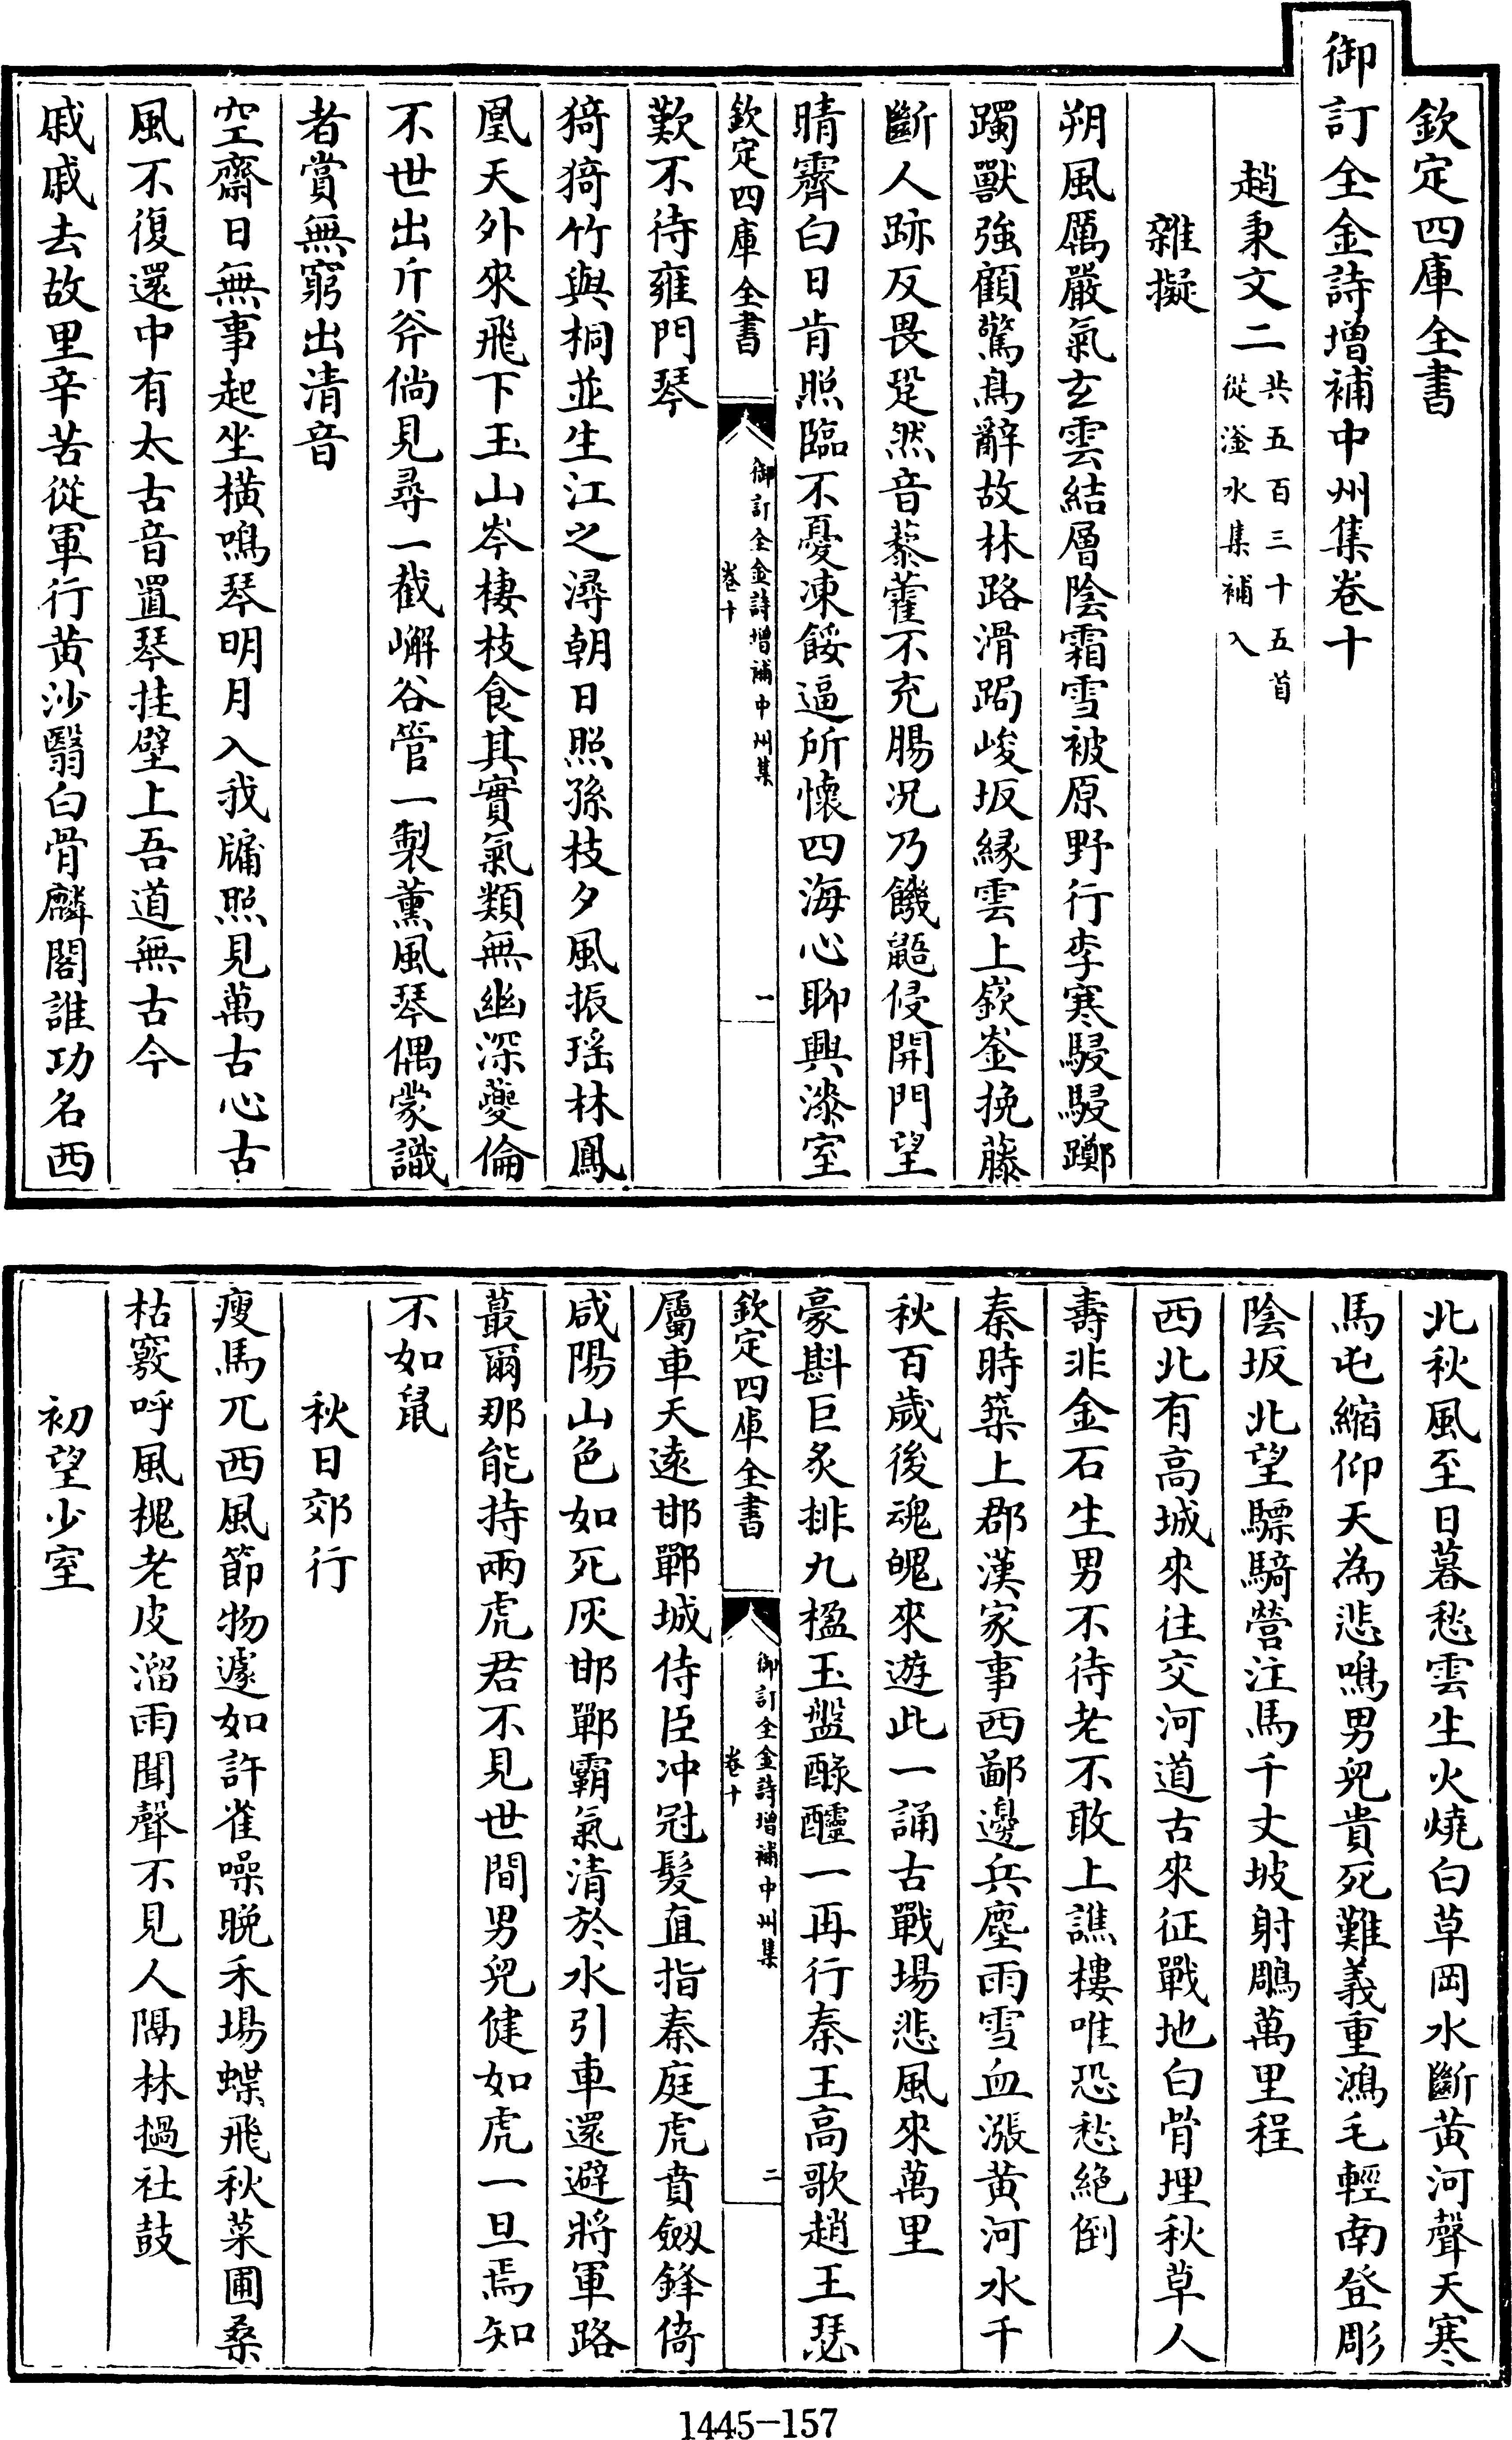 欽定四庫全書
御訂全金詩增補中州集卷十
趙秉文二共五百三十五首從滏水集補入
雜擬
朔風厲嚴氣玄雲結層陰霜雪被原野行李寒駸駸躑
躅獸強顧驚鳥辭故林路滑跼峻坂緣雲上嶔崟挽藤
斷人跡反畏跫然音藜藿不充腸况乃饑鼯侵開門望
晴霽白日肯照臨不憂凍餒逼所懷四海心聊興漆室
歎不待雍門琴
欽定四庫全書
御訂全金詩增補中州集
卷十
一
猗猗竹與桐並生江之潯朝日照孫枝夕風振瑶林鳳
凰天外來飛下玉山岑棲枝食其實氣類無幽深夔倫
不世出斤斧倘見尋一截嶰谷管一製薰風琴偶蒙識
者賞無窮出清音
空齋日無事起坐橫鳴琴明月入我牖照見萬古心古
風不復還中有太古音置琴挂壁上吾道無古今
戚戚去故里辛苦從軍行黃沙翳白骨麟閣誰功名西
北秋風至日暮愁雲生火燒白草岡水斷黃河聲天寒
馬屯縮仰天為悲鳴男兒貴死難義重鴻毛輕南登彫
陰坂北望驃騎營注馬千丈坡射鵰萬里程
西北有高城來往交河道古來征戰地白骨埋秋草人
壽非金石生男不待老不敢上譙樓唯恐愁絕倒
秦時築上郡漢家事西鄙邊兵塵雨雪血漲黃河水千
秋百歲後魂魄來遊此一誦古戰場悲風來萬里
豪斟巨炙排九楹玉盤醁醽一再行秦王高歌趙王瑟
欽定四庫全書
御訂全金詩增補中州集
卷十
二
屬車天遠邯鄲城侍臣冲冠髮直指秦庭虎賁劔鋒倚
咸陽山色如死灰邯鄲霸氣清於水引車還避將軍路
蕞爾那能持兩虎君不見世間男兒健如虎一旦焉知
不如鼠
秋日郊行
瘦馬兀西風節物遽如許雀噪晚禾場蝶飛秋菜圃桑
枯竅呼風槐老皮溜雨聞聲不見人隔林撾社鼓
初望少室
1445-157